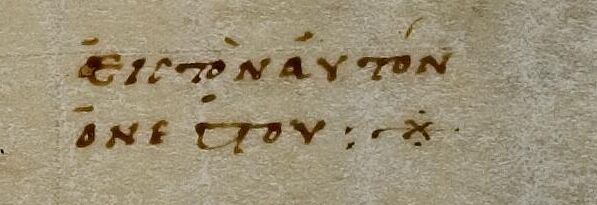 ΕΙϹ ΤΟΝ ΑΥΤΟΝ
ΟΝΕϹΤΟΥ : ※